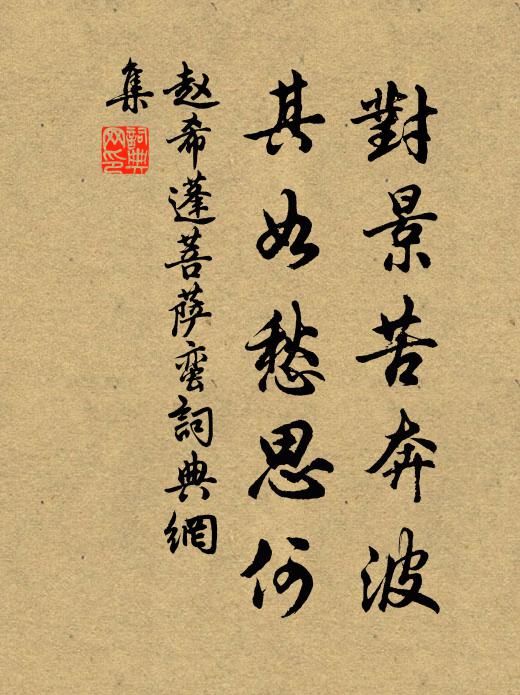 對景苦奔波
其如愁思何
赵希蓬菩萨蛮詞典網
集
詞典
网印